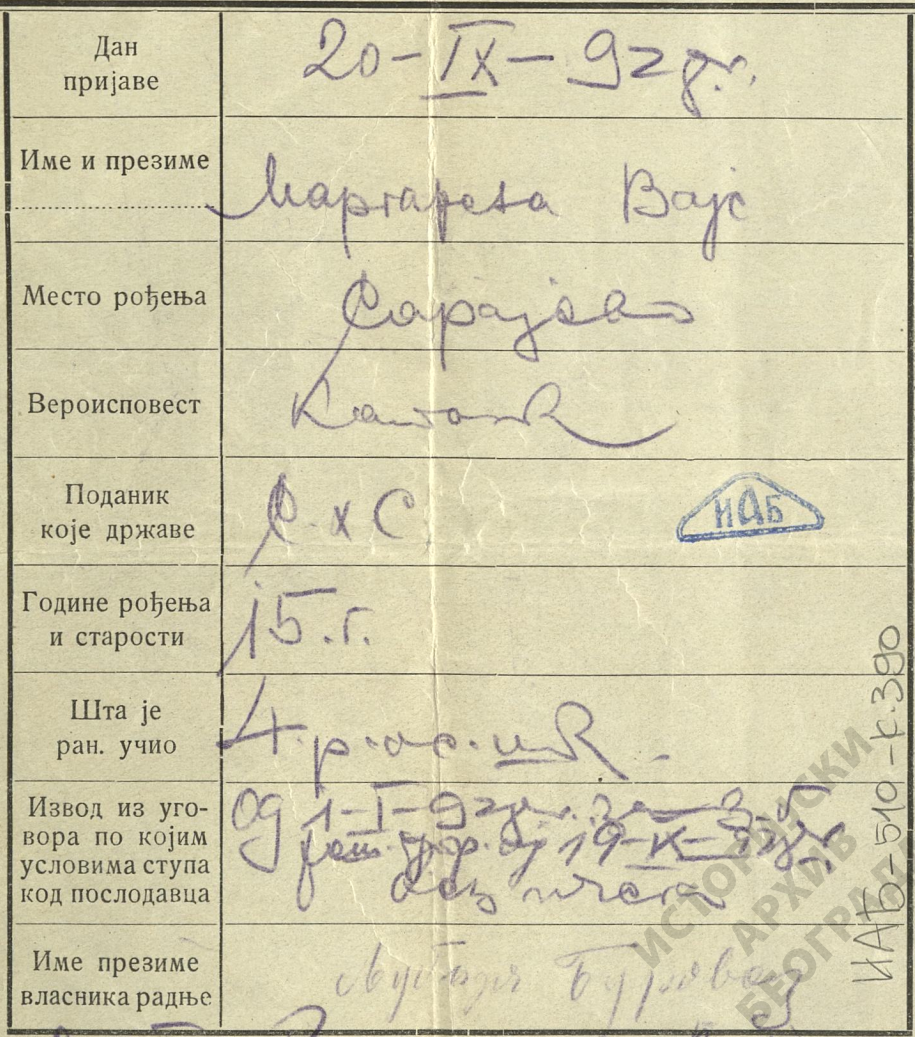 Дан
пријаве
20-IX-92гд.
Име и презиме
Маргарета Вајс
Место рођења
Сарајево
Вероисповест
Католик
Поданик
које државе
С-х С
ИАБ
Године рођења
и старости
15.г.
Шта је
ран. учио
4.р.ос.шк.
Извод из уго-
вора по којим
условима ступа
код послодавца
од 1-I-92
19-X-
Име презиме
власника радње
ИСТОРИЈСКИ
АРХИВ
БЕОГРАДА
ИАБ-510-к.390